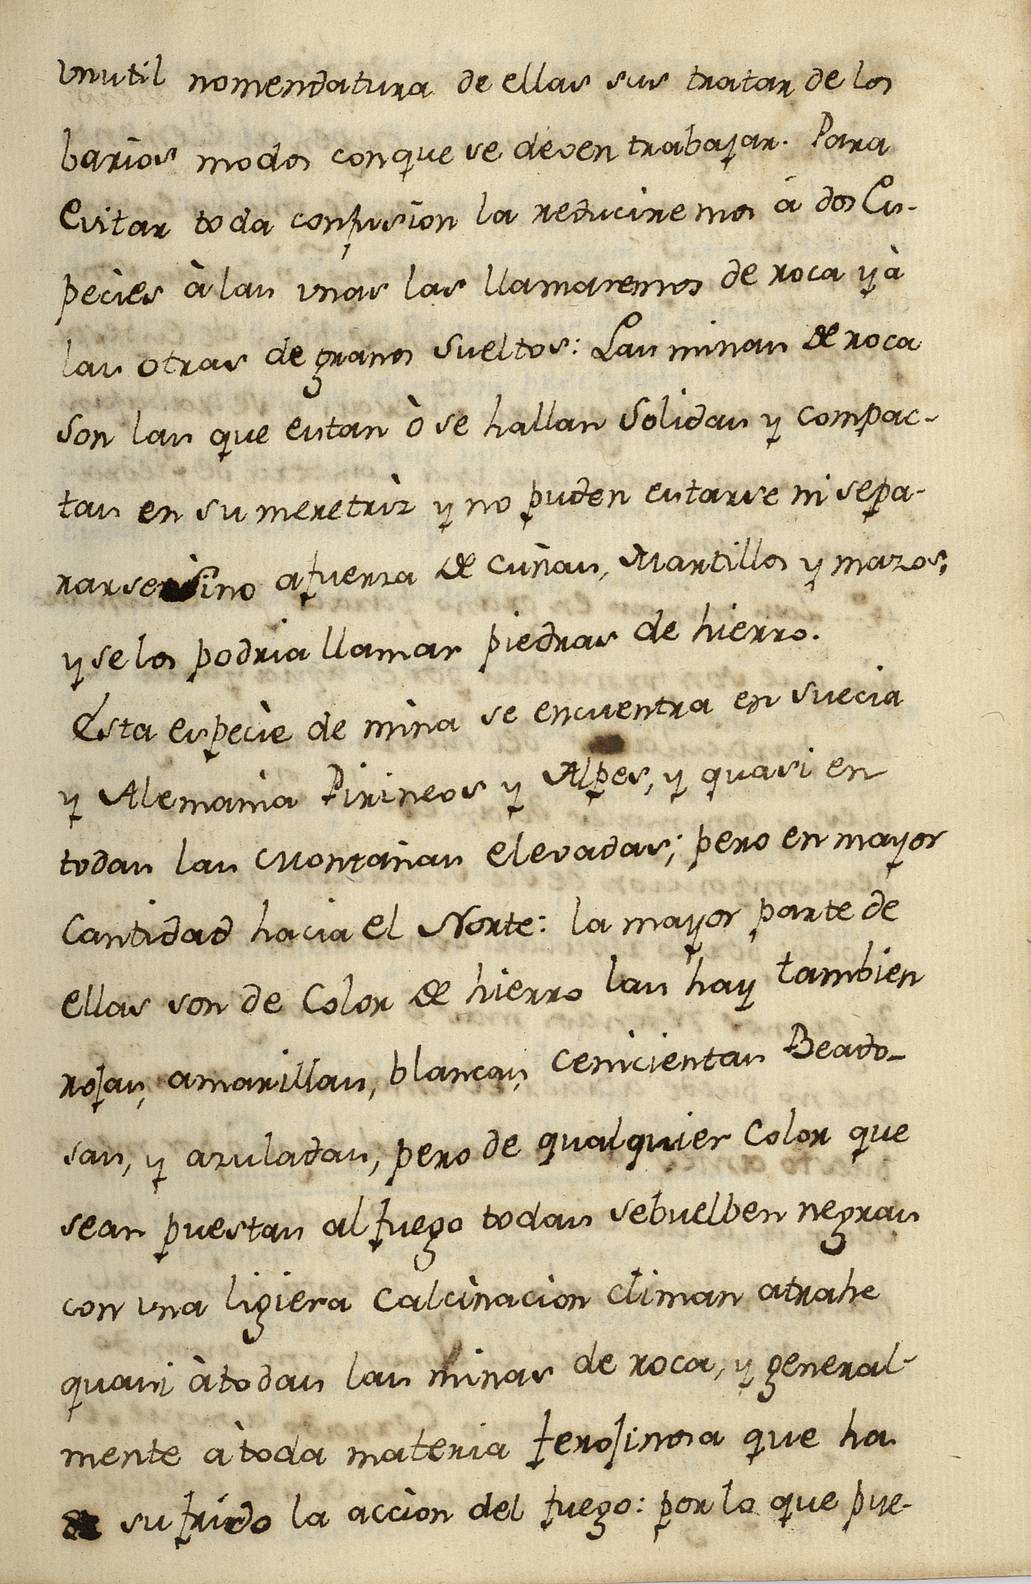 vnutil nomendatura de ellas sus tratar de los
barios modos con que se deven trabajar. Para
Evitar toda confusion la reduciremos á dos Es-
pecies à las vnas las llamaremos de roca y à
las otras de granos sueltos: Las minas de roca
son las que estan ò se hallan Solidas y compac-
tas en su meretriz y no puden estarse ni sepa-
rarse sino afuerza de cuñas, Martillos y mazos;
y se los podria llamar piedras de hierro.
Esta especie de mina se encuentra en suecia
y Alemania Pirineos y Alpes, y quasi en
todas las Montañas elevadas; pero en mayor
Cantidad hacia el Norte: la mayor parte de
ellas son de Color de hierro las hay tambien
rojas, amarillas, blancas, cenicientas Beado-
sas, y azuladas, pero de qualquier Color que
sean puestas al fuego todas se buelben negras
con vna ligiera Calcinacion el iman atrahe
quasi àtodas las minas de roca, y general-
mente àtoda materia ferojinosa que ha
sufrido la accion del fuego: por lo que pue-